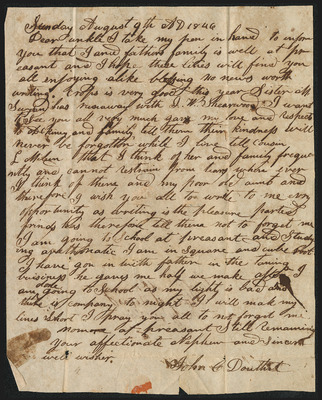 Sunday August 9th AD 1846
Dear unkle I take my pen in hand to inform
you that I and fathers family is well at pr
easant and I hope these lines will find you
all enjoying alike blessing no news worth
writing Crops is very good this year Sister M
Susan has runaway with J. W. Shearin I want
see you all very much gave my love and respects
to and family tell them their kindness will
never be forgotten while I live tell cousin
that I think of her and family freque
ntly and cannot restrain from tears when ever
I think of them and my poor old aunt and
therefore I wish you all to write to me evry
opportunity as writing is the pleasure parted
frinds has therefore tell them not to forget me
I am going to School at preasant and Study
ing arithmatic I am in Square and cube root
I have gon in with father in the
buisiness he gaves me half we make after I
am done going to School as my light is bad and
there is company to night I will make my
lines Short I pray you all to not forget me
no more at preasant Still remaining
your affectionate Nephew and sincere
well wisher.
John C Douthit